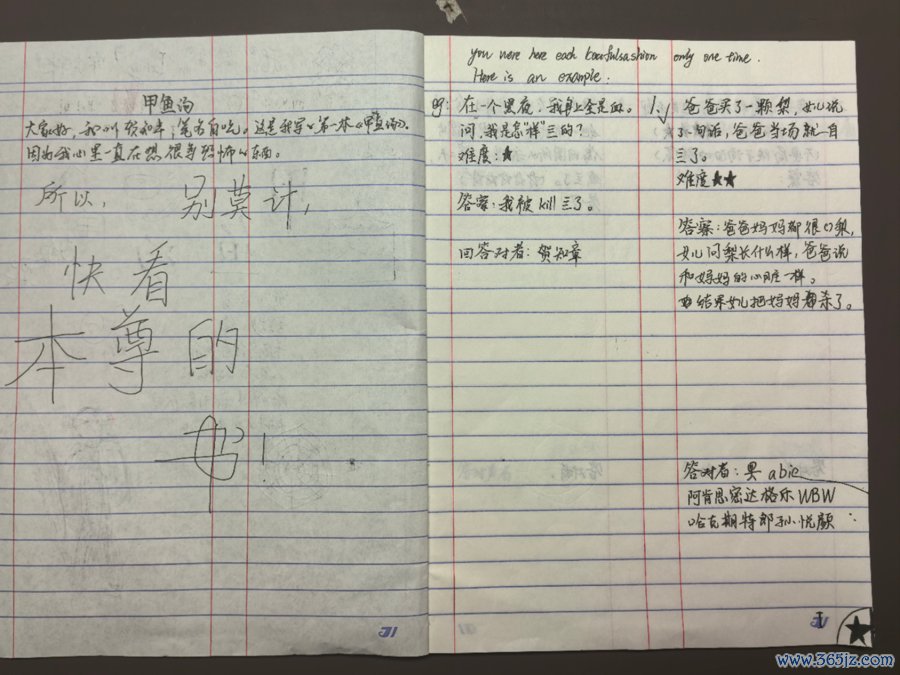 甲鱼汤
大家好，我叫贺知年，笔名自吃。这是我写的第一本《甲鱼汤》。
因为我心里一直在想很等恐怖的东西。
所以， 别莫计，
快看
本尊的
书！
you were here each only one time.
Here is an example.
例：在一个黑夜，我身上全是血。
问，我是怎“样”亖的？
难度：★
答案：我被kill亖了。
回答对者：贺知章
1. 爸爸买了一颗梨，女儿说
了一句话，爸爸当场就自
亖了。
难度★★
答案：爸爸妈妈都很口梨，
女儿问梨长什么样，爸爸说
和妈妈的心脏一样。
结果女儿把妈妈杀了。
答对者：吴abie
阿肯思密达格乐WBW
哈克期特郎孙悦颜
www.365jz.com